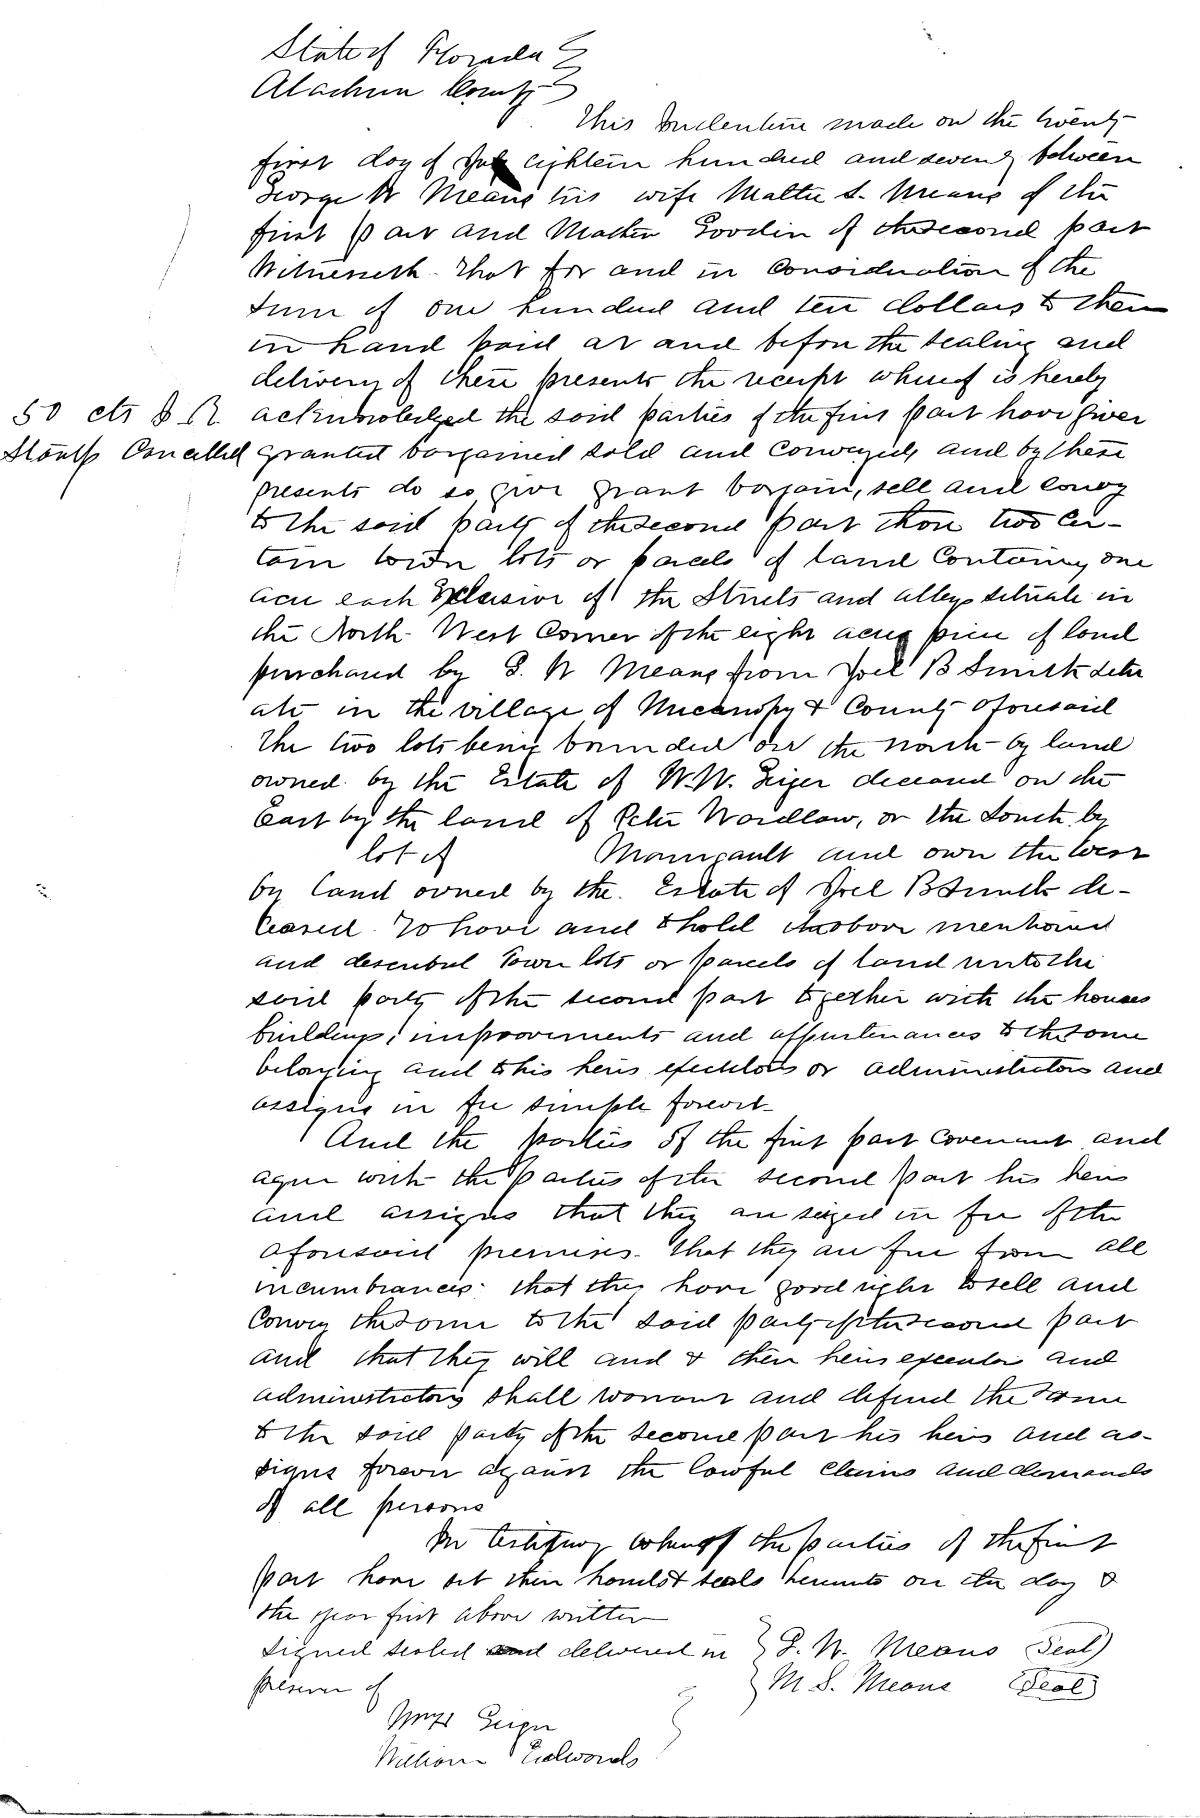 State of Florida
Alachua County
This Indenture made on the twenty
first day of July eighteen hundred and seventy between
George W Means his wife Mattie S. Means of the
first part and Mathew Goodin of the second part
Witnesseth. That for and in consideration of the
sum of one hundred and ten dollars to them
in hand paid at and before the sealing and
delivery of these presents the receipt whereof is hereby
50 cts I. R. acknowledged the said parties of the first part have given
Stamps Cancelled granted bargained sold and conveyed, and by these
presents do so give grant bargain, sell and convey
to the said party of the second part those two cer-
tain town lots or parcels of land containing one
acre each Exclusive of the Streets and alleys situate in
the North West Corner of the eight acre piece of land
purchased by G. W Means from Joel B Smith situ
ate in the village of Micanopy & County aforesaid
the two lots being bounded on the north by land
owned by the Estate of W.W. Geiger deceased on the
East by the land of Peter Wardlaw, or the South by
lot of Manigault and own the west
by land owned by the Estate of Joel B Smith de-
ceased. To have and to hold the above mentioned
and described Town lots or parcels of land unto the
said party of the second part together with the houses
buildings, improvements and appurtenances to the same
belonging and to his heirs executors or administrators and
assigns in fee simple forever-
And the parties of the first part covenant and
agree with the parties of the second part his heirs
and assigns that they are seized in fee of the
aforesaid premises. that they are free from all
incumbrances. that they have good right to sell and
Convey the same to the said party of the second part
and that they will and & their heirs executors and
administrators shall warrant and defend the same
to the said party of the second part his heirs and as-
signs forever against the lawful claims and demands
of all persons
In testimony whereof the parties of the first
part have set their hands & seals hereunto on the day &
the year first above written
signed sealed and delivered in G. W. Means (Seal)
presence of M S. Means (Seal)
Geiger
William Edwards